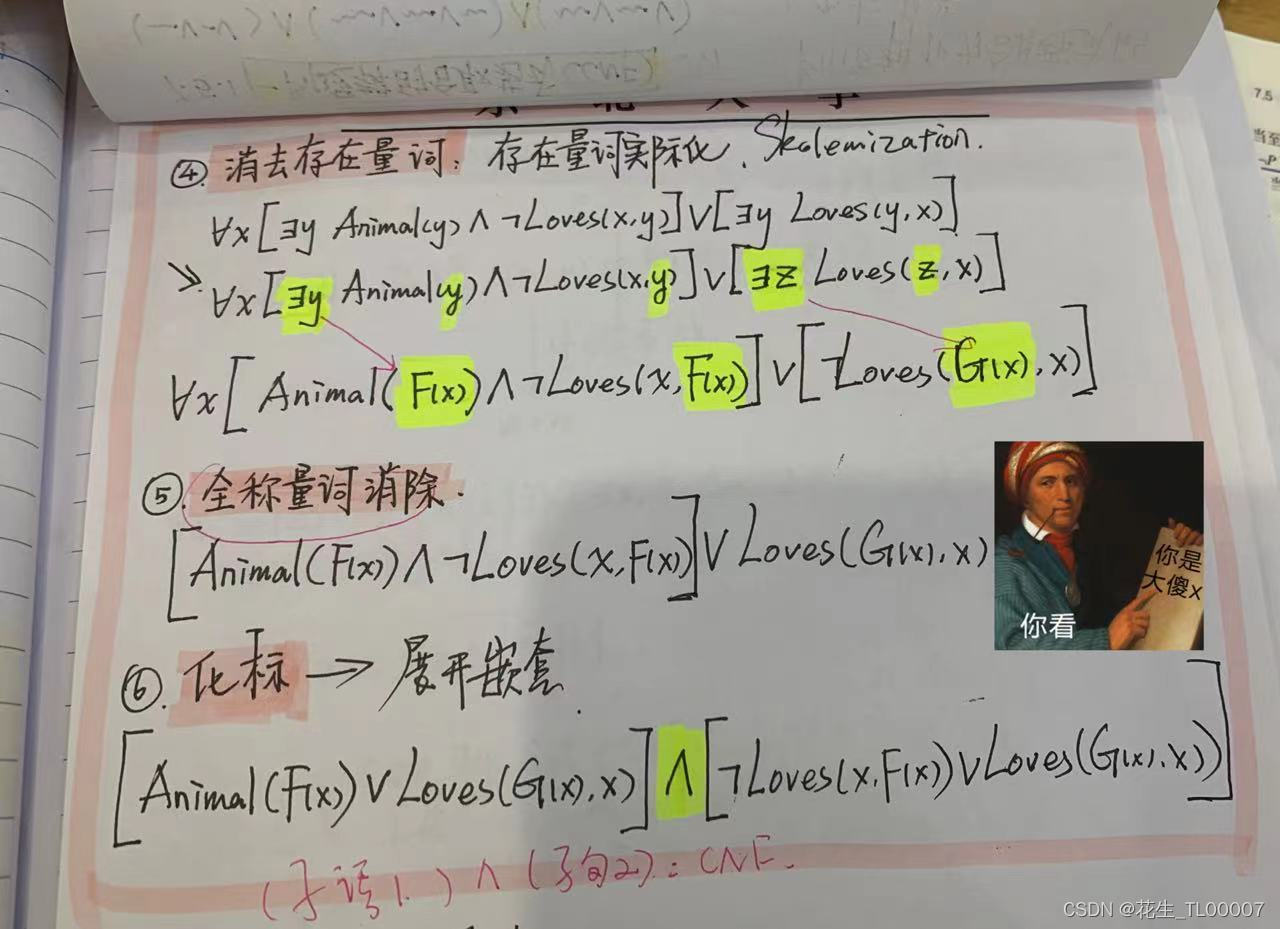 ④. 消去存在量词: 存在量词实际化. Skolemization.
∀x[∃y Animal(y)∧¬Loves(x,y)]∨[∃y Loves(y,x)]
∀x[∃y Animal(y)∧¬Loves(x,y)]∨[∃z Loves(z,x)]
∀x[Animal(F(x))∧¬Loves(x,F(x))]∨[¬Loves(G(x),x)]
⑤. 全称量词消除.
[Animal(F(x))∧¬Loves(x,F(x))]∨Loves(G(x),x)
你是
大傻x
你看
⑥. 化标 → 展开嵌套.
[Animal(F(x))∨Loves(G(x),x)]∧[¬Loves(x,F(x))∨Loves(G(x),x))]
(子语1.)∧(子句2): CNF.
7.5
当至
¬P
CSDN @花生_TL00007